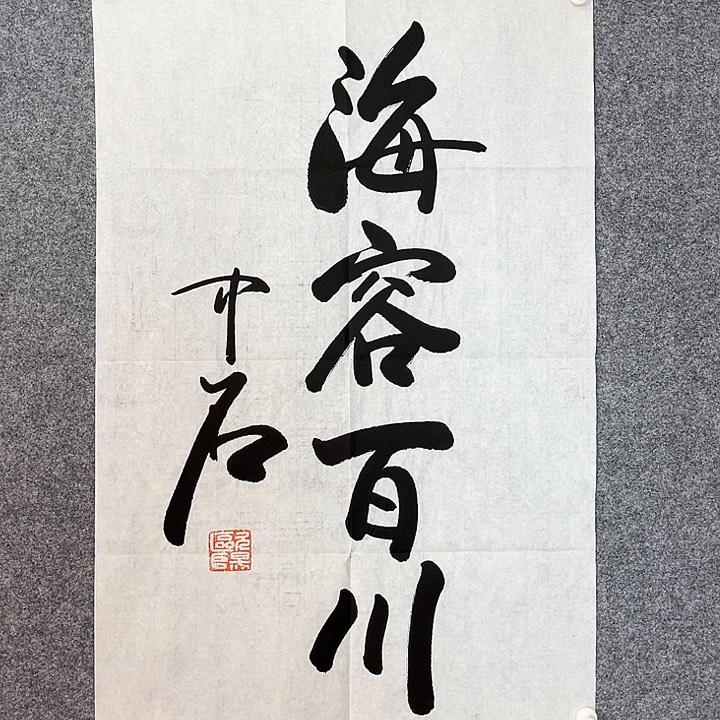 海容百川
中石